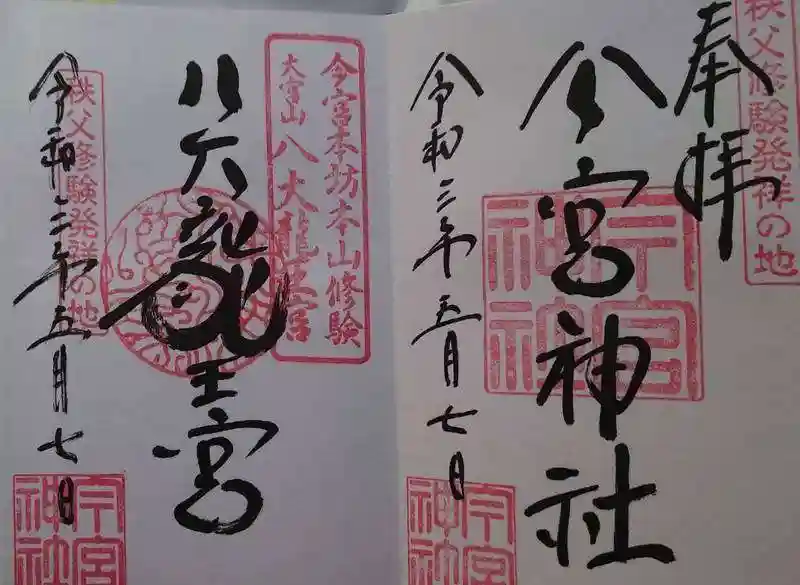 秩父修験発祥の地
奉拝
今宮神社
今宮神社
令和三年五月七日
今宮神社
今宮本坊本山修験
大宮山
八大龍王宮
八大龍王宮
秩父修験発祥の地
令和三年五月七日
今宮神社